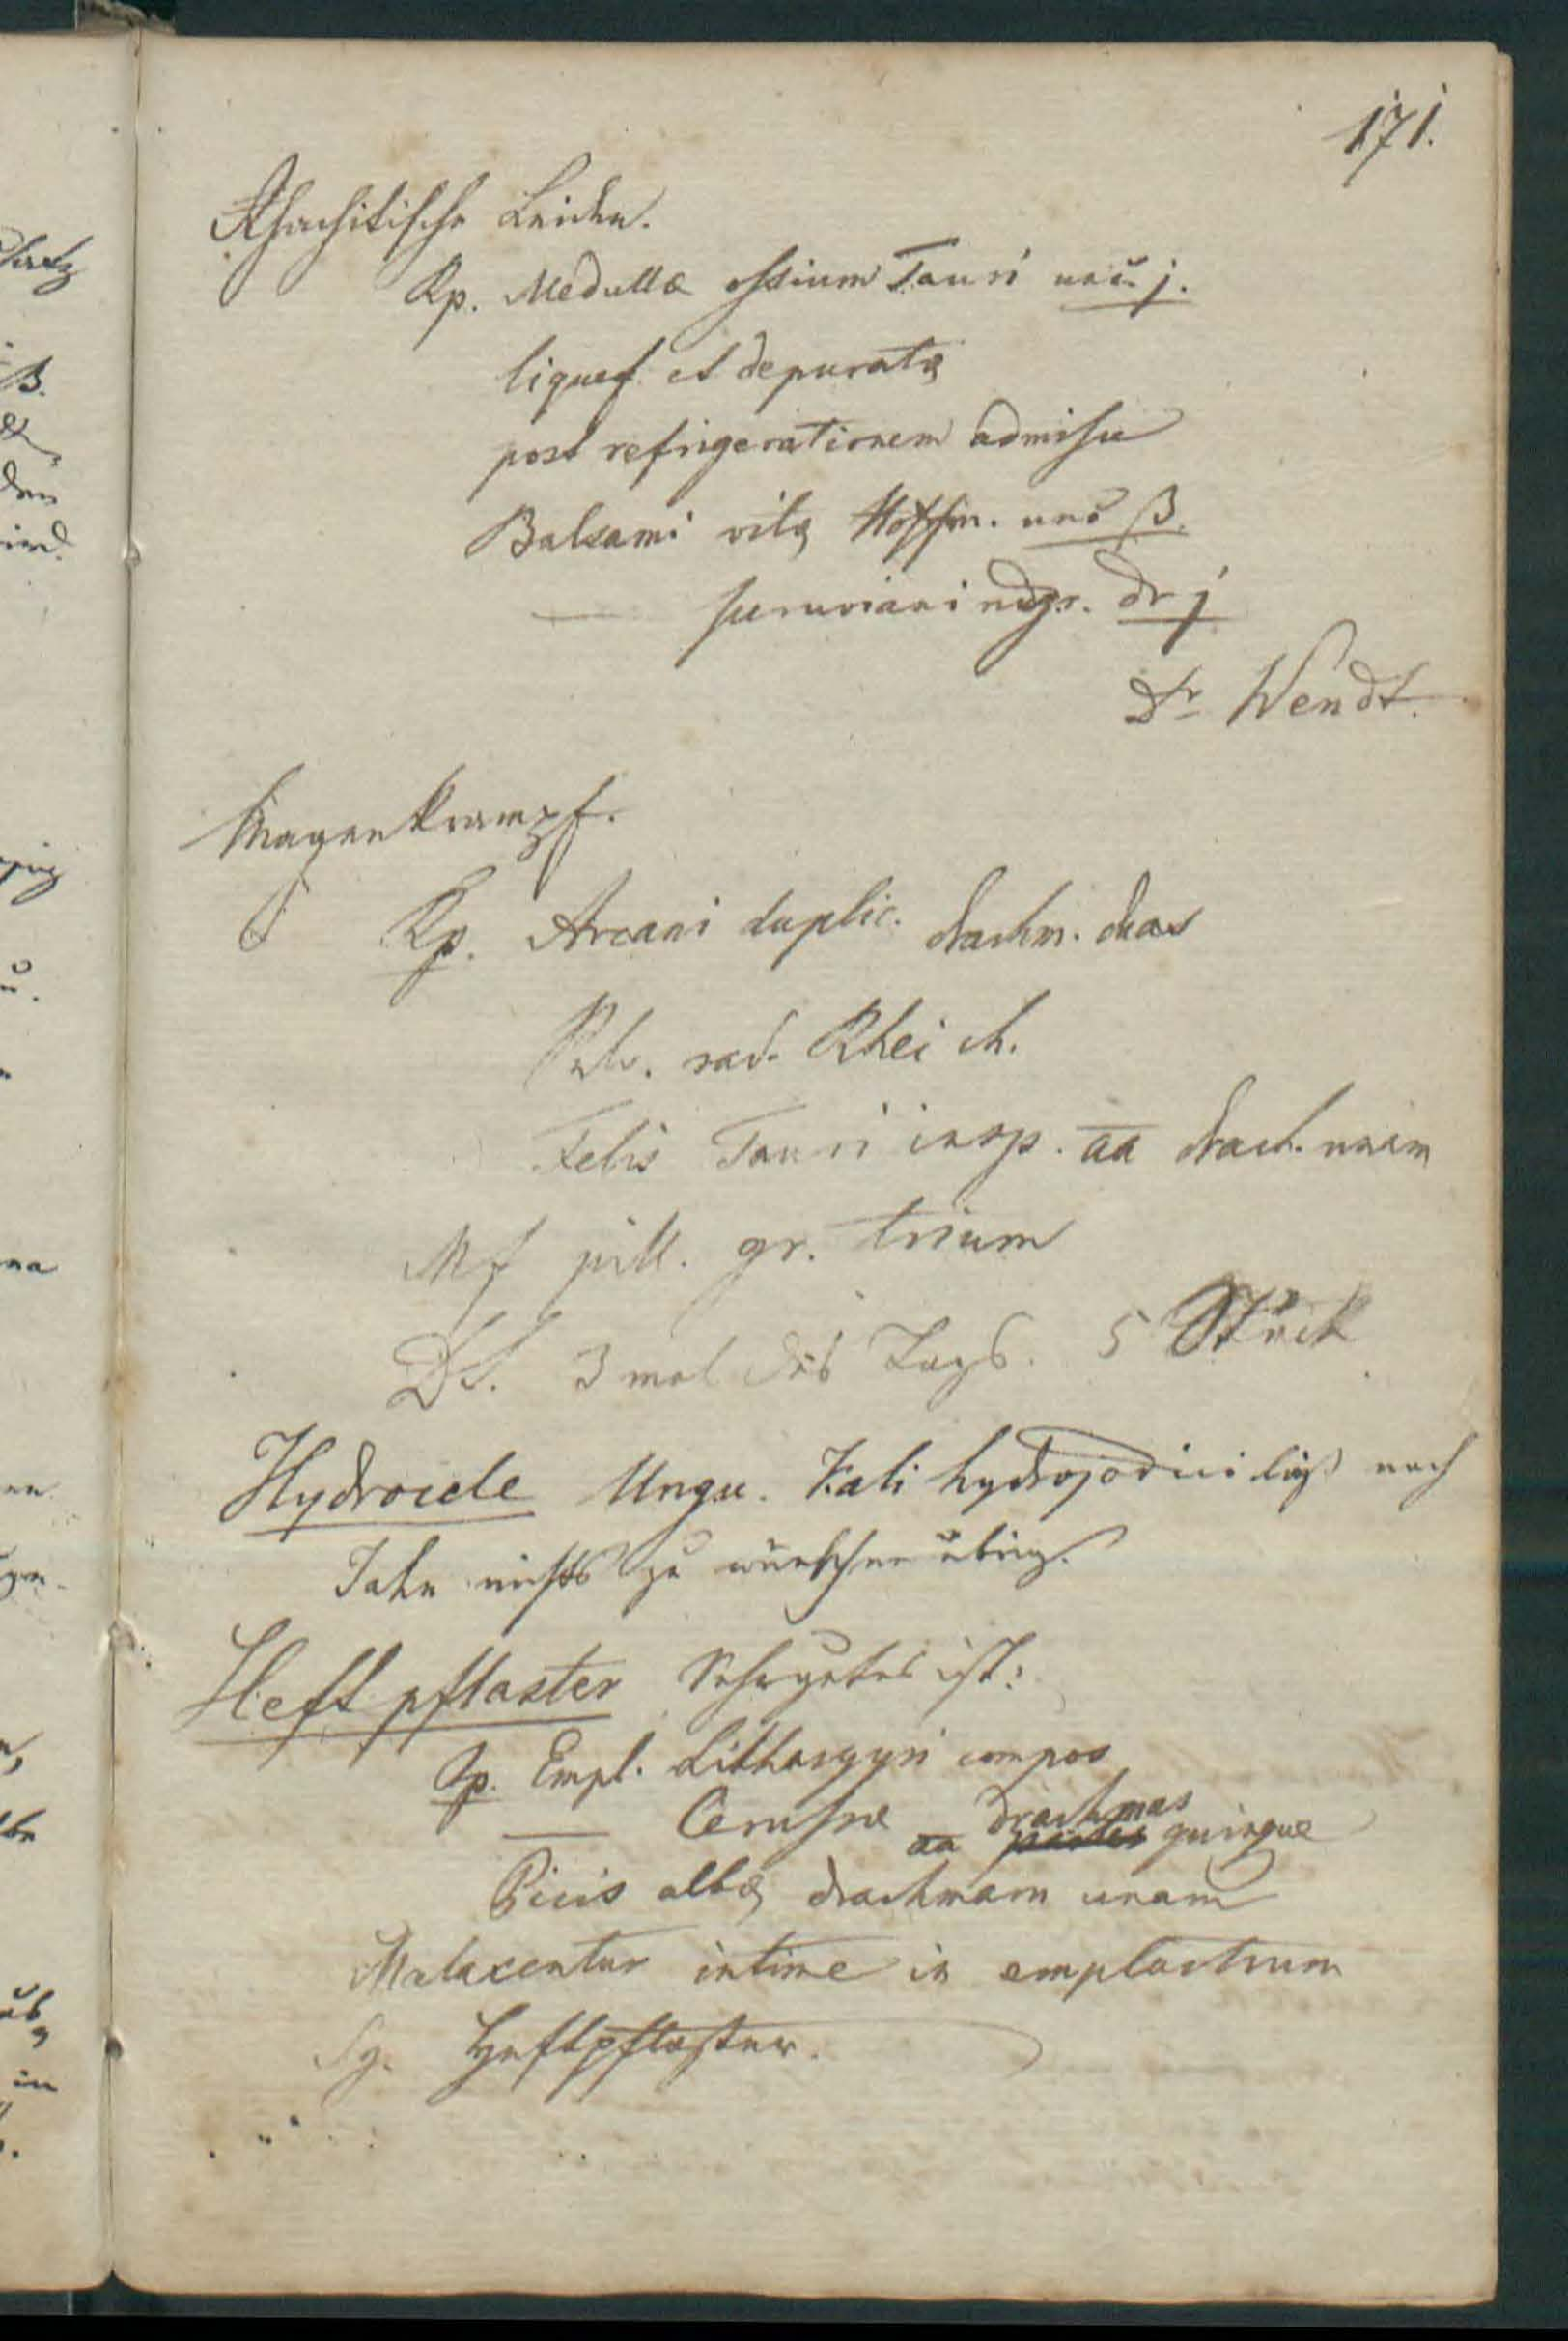 171.
Rhachitische Leiden.
Rp. Medullæ ossium Tauri unc. j.
liquef. et depuratæ
post refrigerationem admisce
Balsami vitæ Hoffm. unc ß.
— peruviani nigr. dr j
Dr Wendt.
Magenkrampf.
Rp. Arcani duplic. drachm. duas
Pulv. rad. Rhei ch.
Felis Tauri insp. aa drach. unam
Mf pill. gr. trium
DS. 3 mal des Tags. 5 Stück
Hydrocele Ungu. Kali hydrojodici läßt nach
Jahn nichts zu wünschen übrig.
Heftpflaster Sehr gutes ist:
Rp. Empl. Lithargyri compos
— Cerussae aa drachmas quinque
Picis albæ drachmam unam
Malaxentur intime in emplastrum
Sg. Heftpflaster.